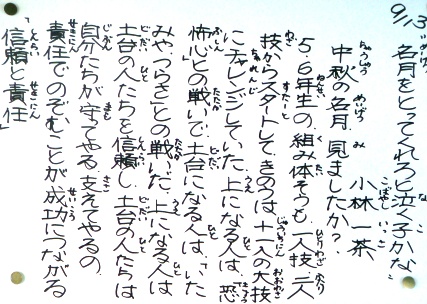 9/13 名月をとってくれろと泣く子かな
小林一茶
中秋の名月、見ましたか?
5・6年生の組み体そうも一人技、二人
技からスタートしてきのうは、十一人の大技
にチャレンジしていた。上になる人は、恐
怖心との戦いで、土台になる人は、「いた
みやつらさ」との戦いだ。上になる人は
土台の人たちを信頼し、土台の人たちは
自分たちが守てやる、支えてやるの
責任でのぞむことが成功につながる
「信頼と責任」